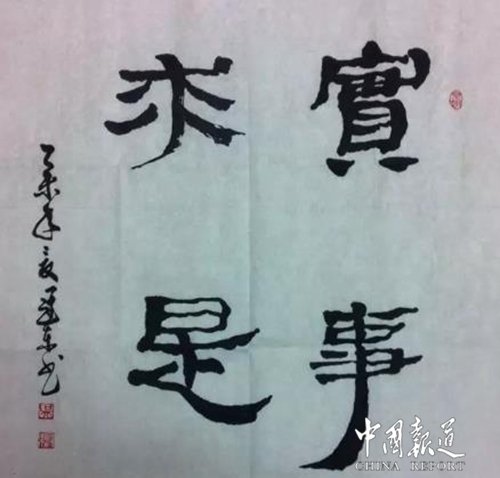 實事
求是
乙未年夏
中國報道
CHINA REPORT